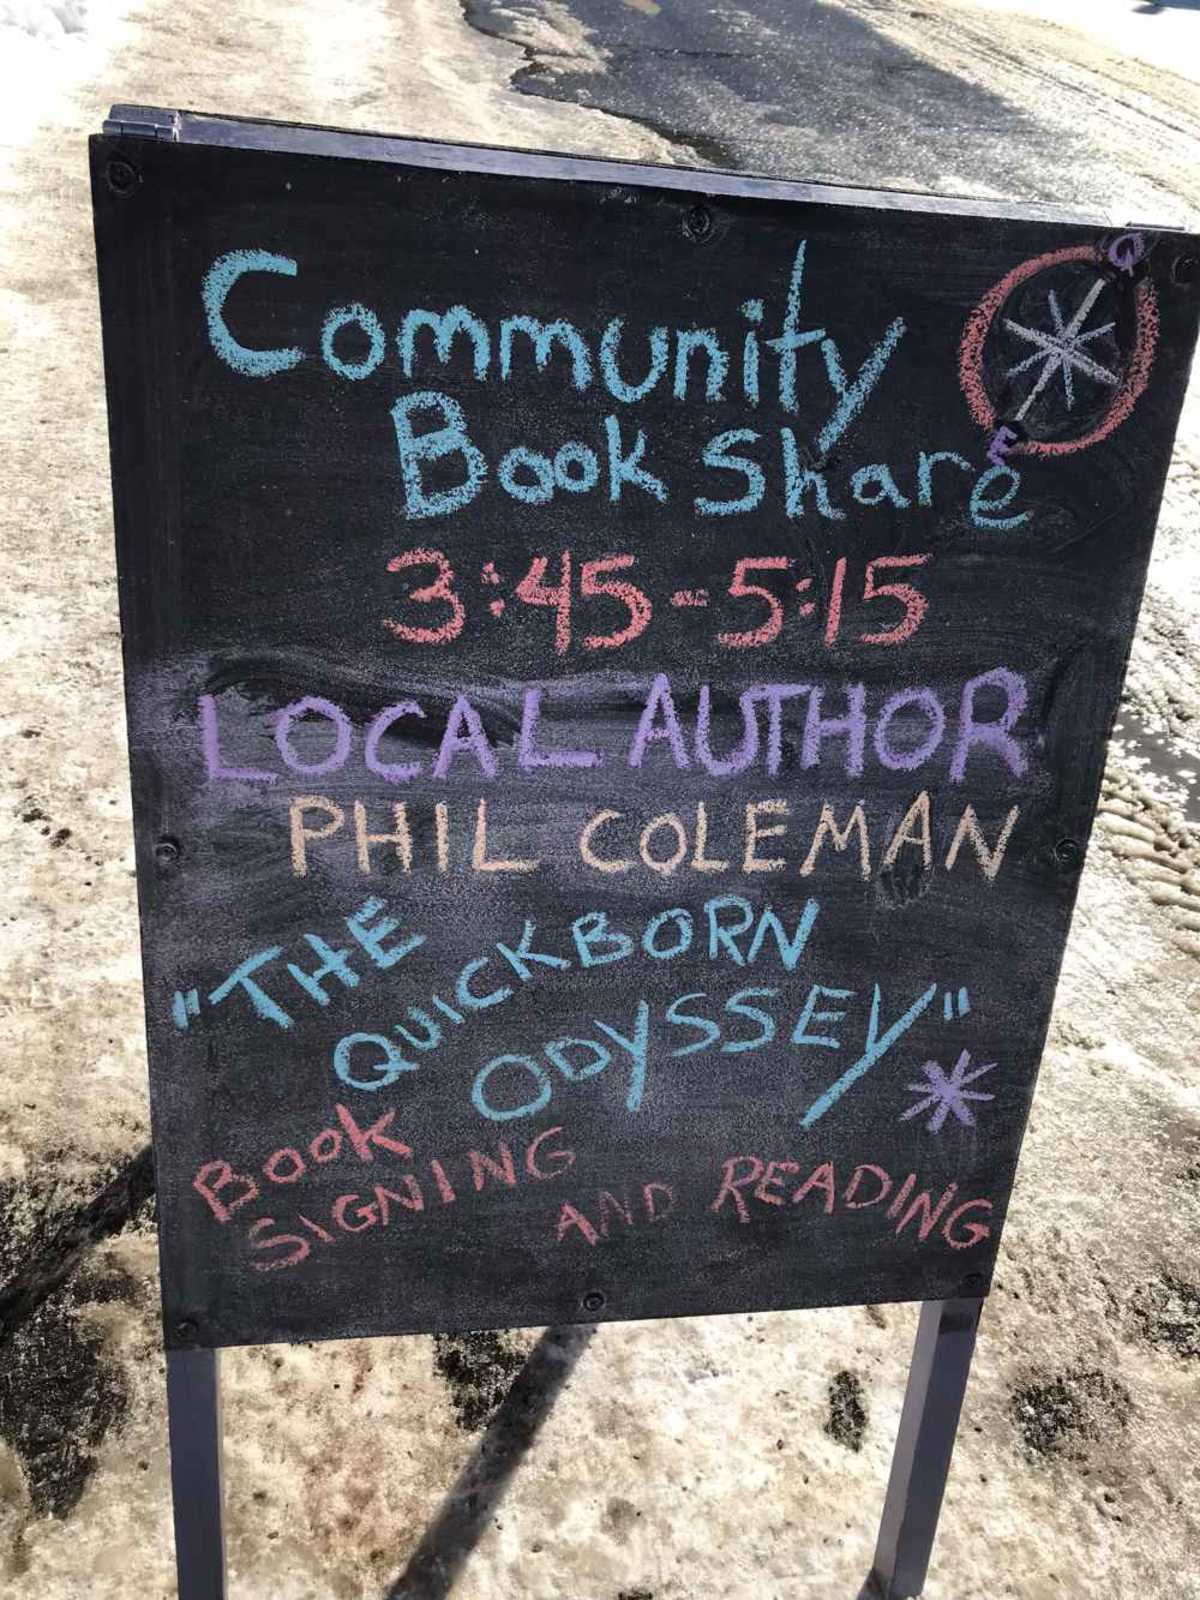 Community
Book Share
Q
E
3:45-5:15
LOCAL AUTHOR
PHIL COLEMAN
"THE
QUICKBORN
ODYSSEY"
BOOK
SIGNING
AND READING